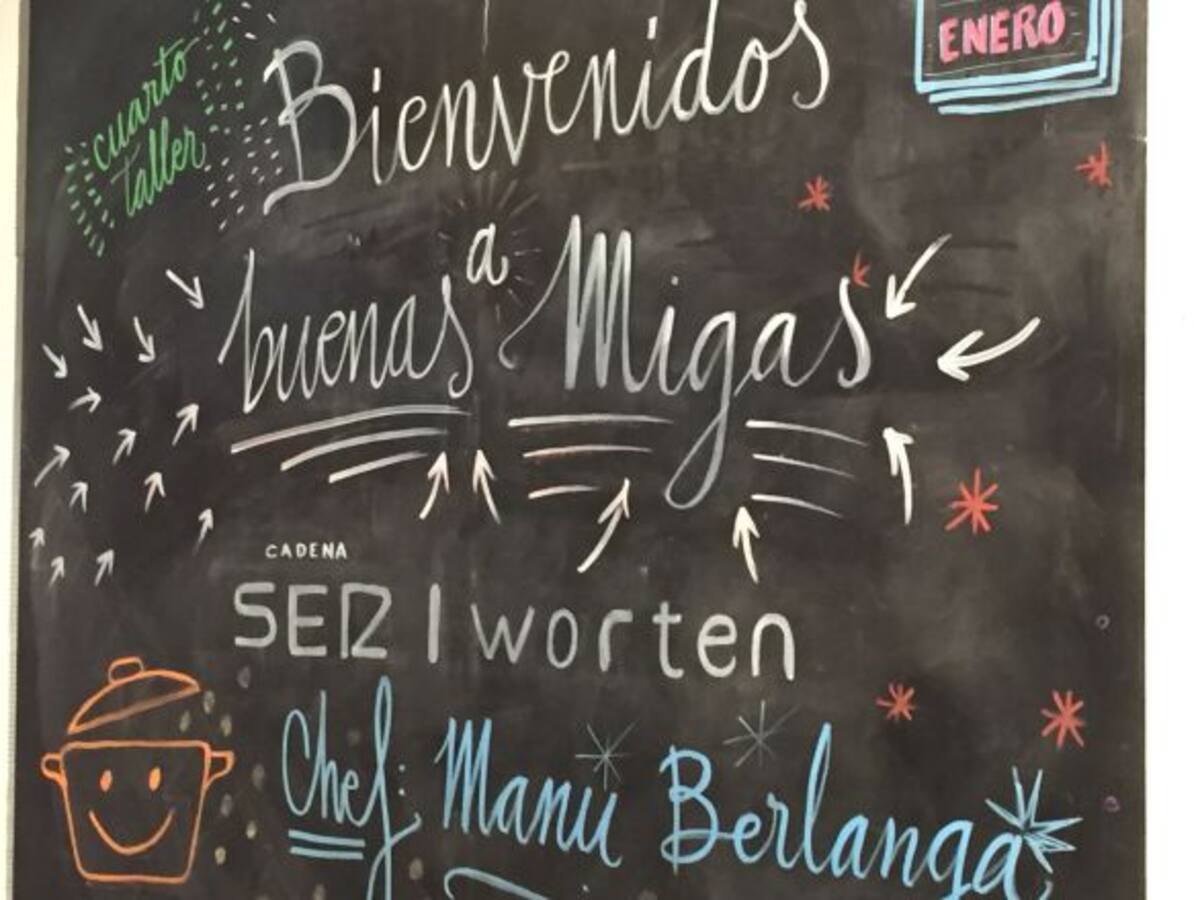 ENERO
cuarto
taller
Bienvenidos
a
buenas Migas
CADENA
SER | worten
Chef: Manu Berlanga